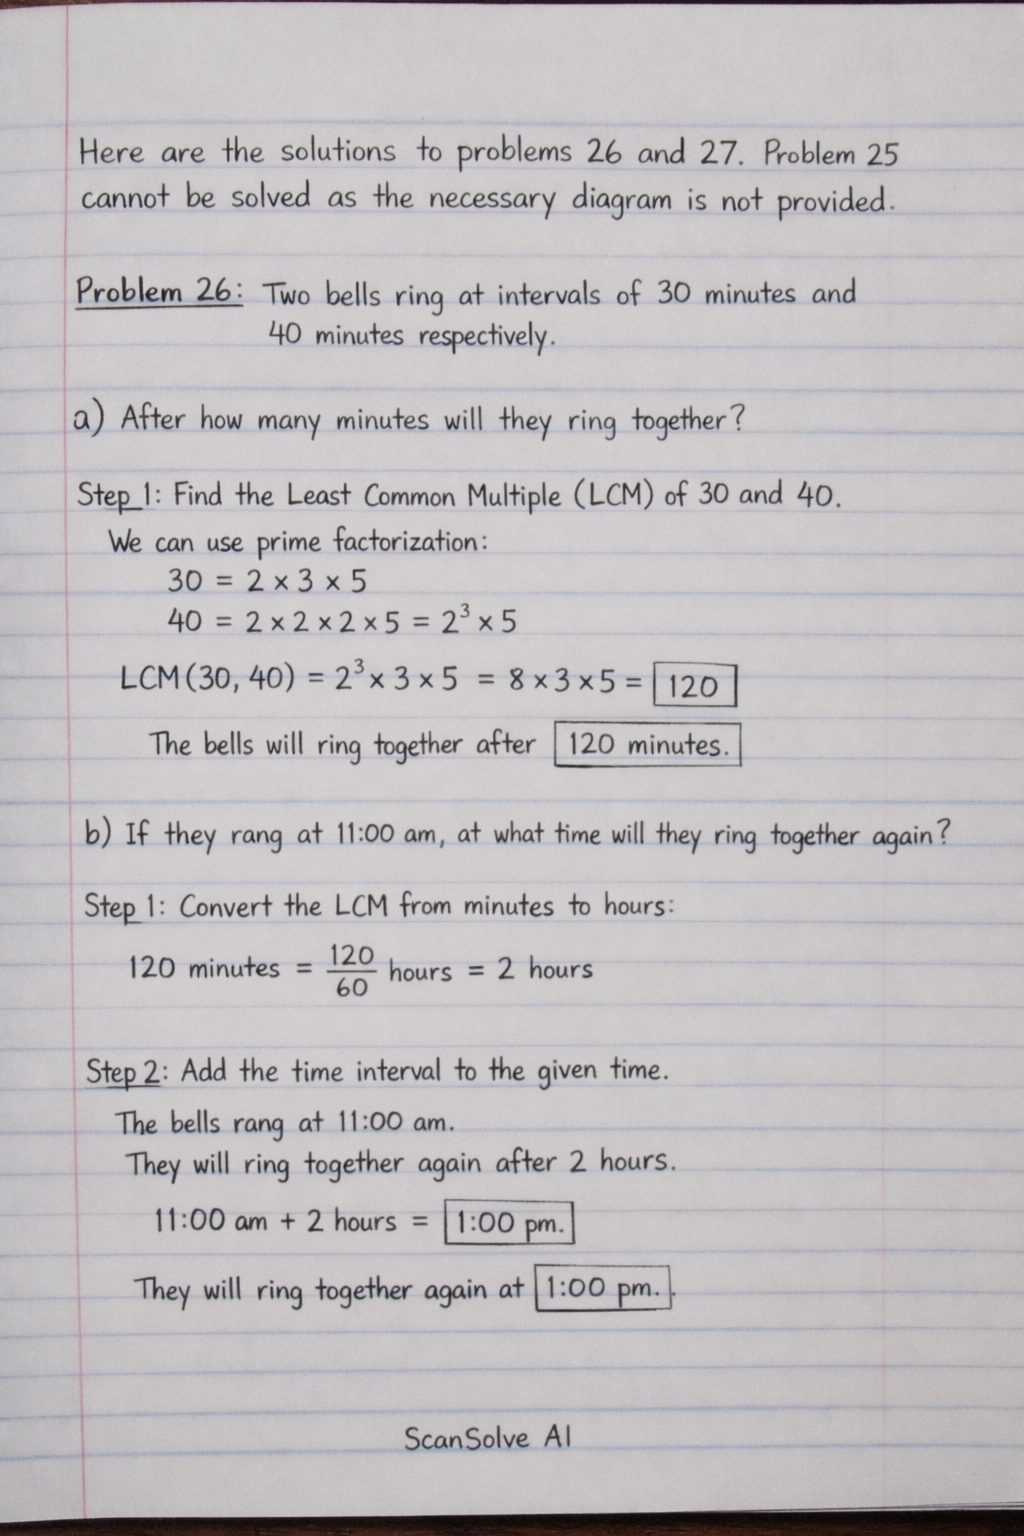 Here are the solutions to problems 26 and 27. Problem 25
cannot be solved as the necessary diagram is not provided.
Problem 26: Two bells ring at intervals of 30 minutes and
40 minutes respectively.
a) After how many minutes will they ring together?
Step 1: Find the Least Common Multiple (LCM) of 30 and 40.
We can use prime factorization:
30 = 2 × 3 × 5
40 = 2 × 2 × 2 × 5 = 2³ × 5
LCM(30, 40) = 2³ × 3 × 5 = 8 × 3 × 5 = 120
The bells will ring together after 120 minutes.
b) If they rang at 11:00 am, at what time will they ring together again?
Step 1: Convert the LCM from minutes to hours:
120 minutes = 120/60 hours = 2 hours
Step 2: Add the time interval to the given time.
The bells rang at 11:00 am.
They will ring together again after 2 hours.
11:00 am + 2 hours = 1:00 pm.
They will ring together again at 1:00 pm..
ScanSolve AI